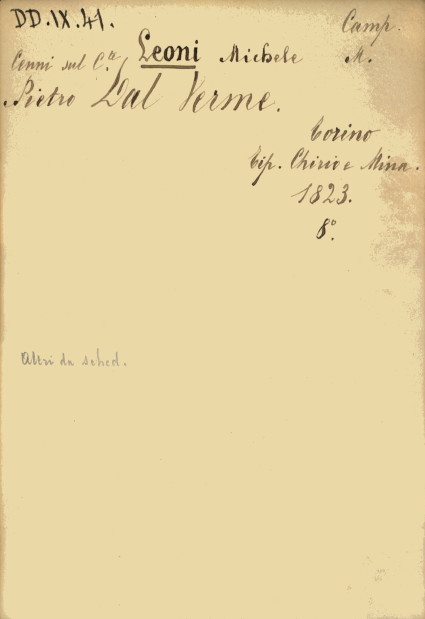 DD.IX.41.
Camp.
M.
Leoni Michele
Cenni sul C.te
Pietro Dal Verme.
Torino
Tip. Chirio e Mina.
1823.
8°.
Altri da sched.